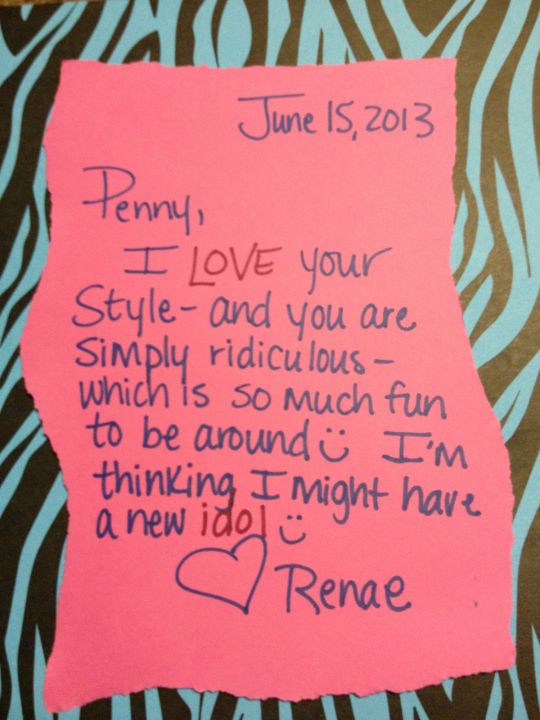 June 15, 2013
Penny,
I LOVE your
Style - and you are
simply ridiculous -
which is so much fun
to be around I'm
thinking I might have
a new idol
Renae